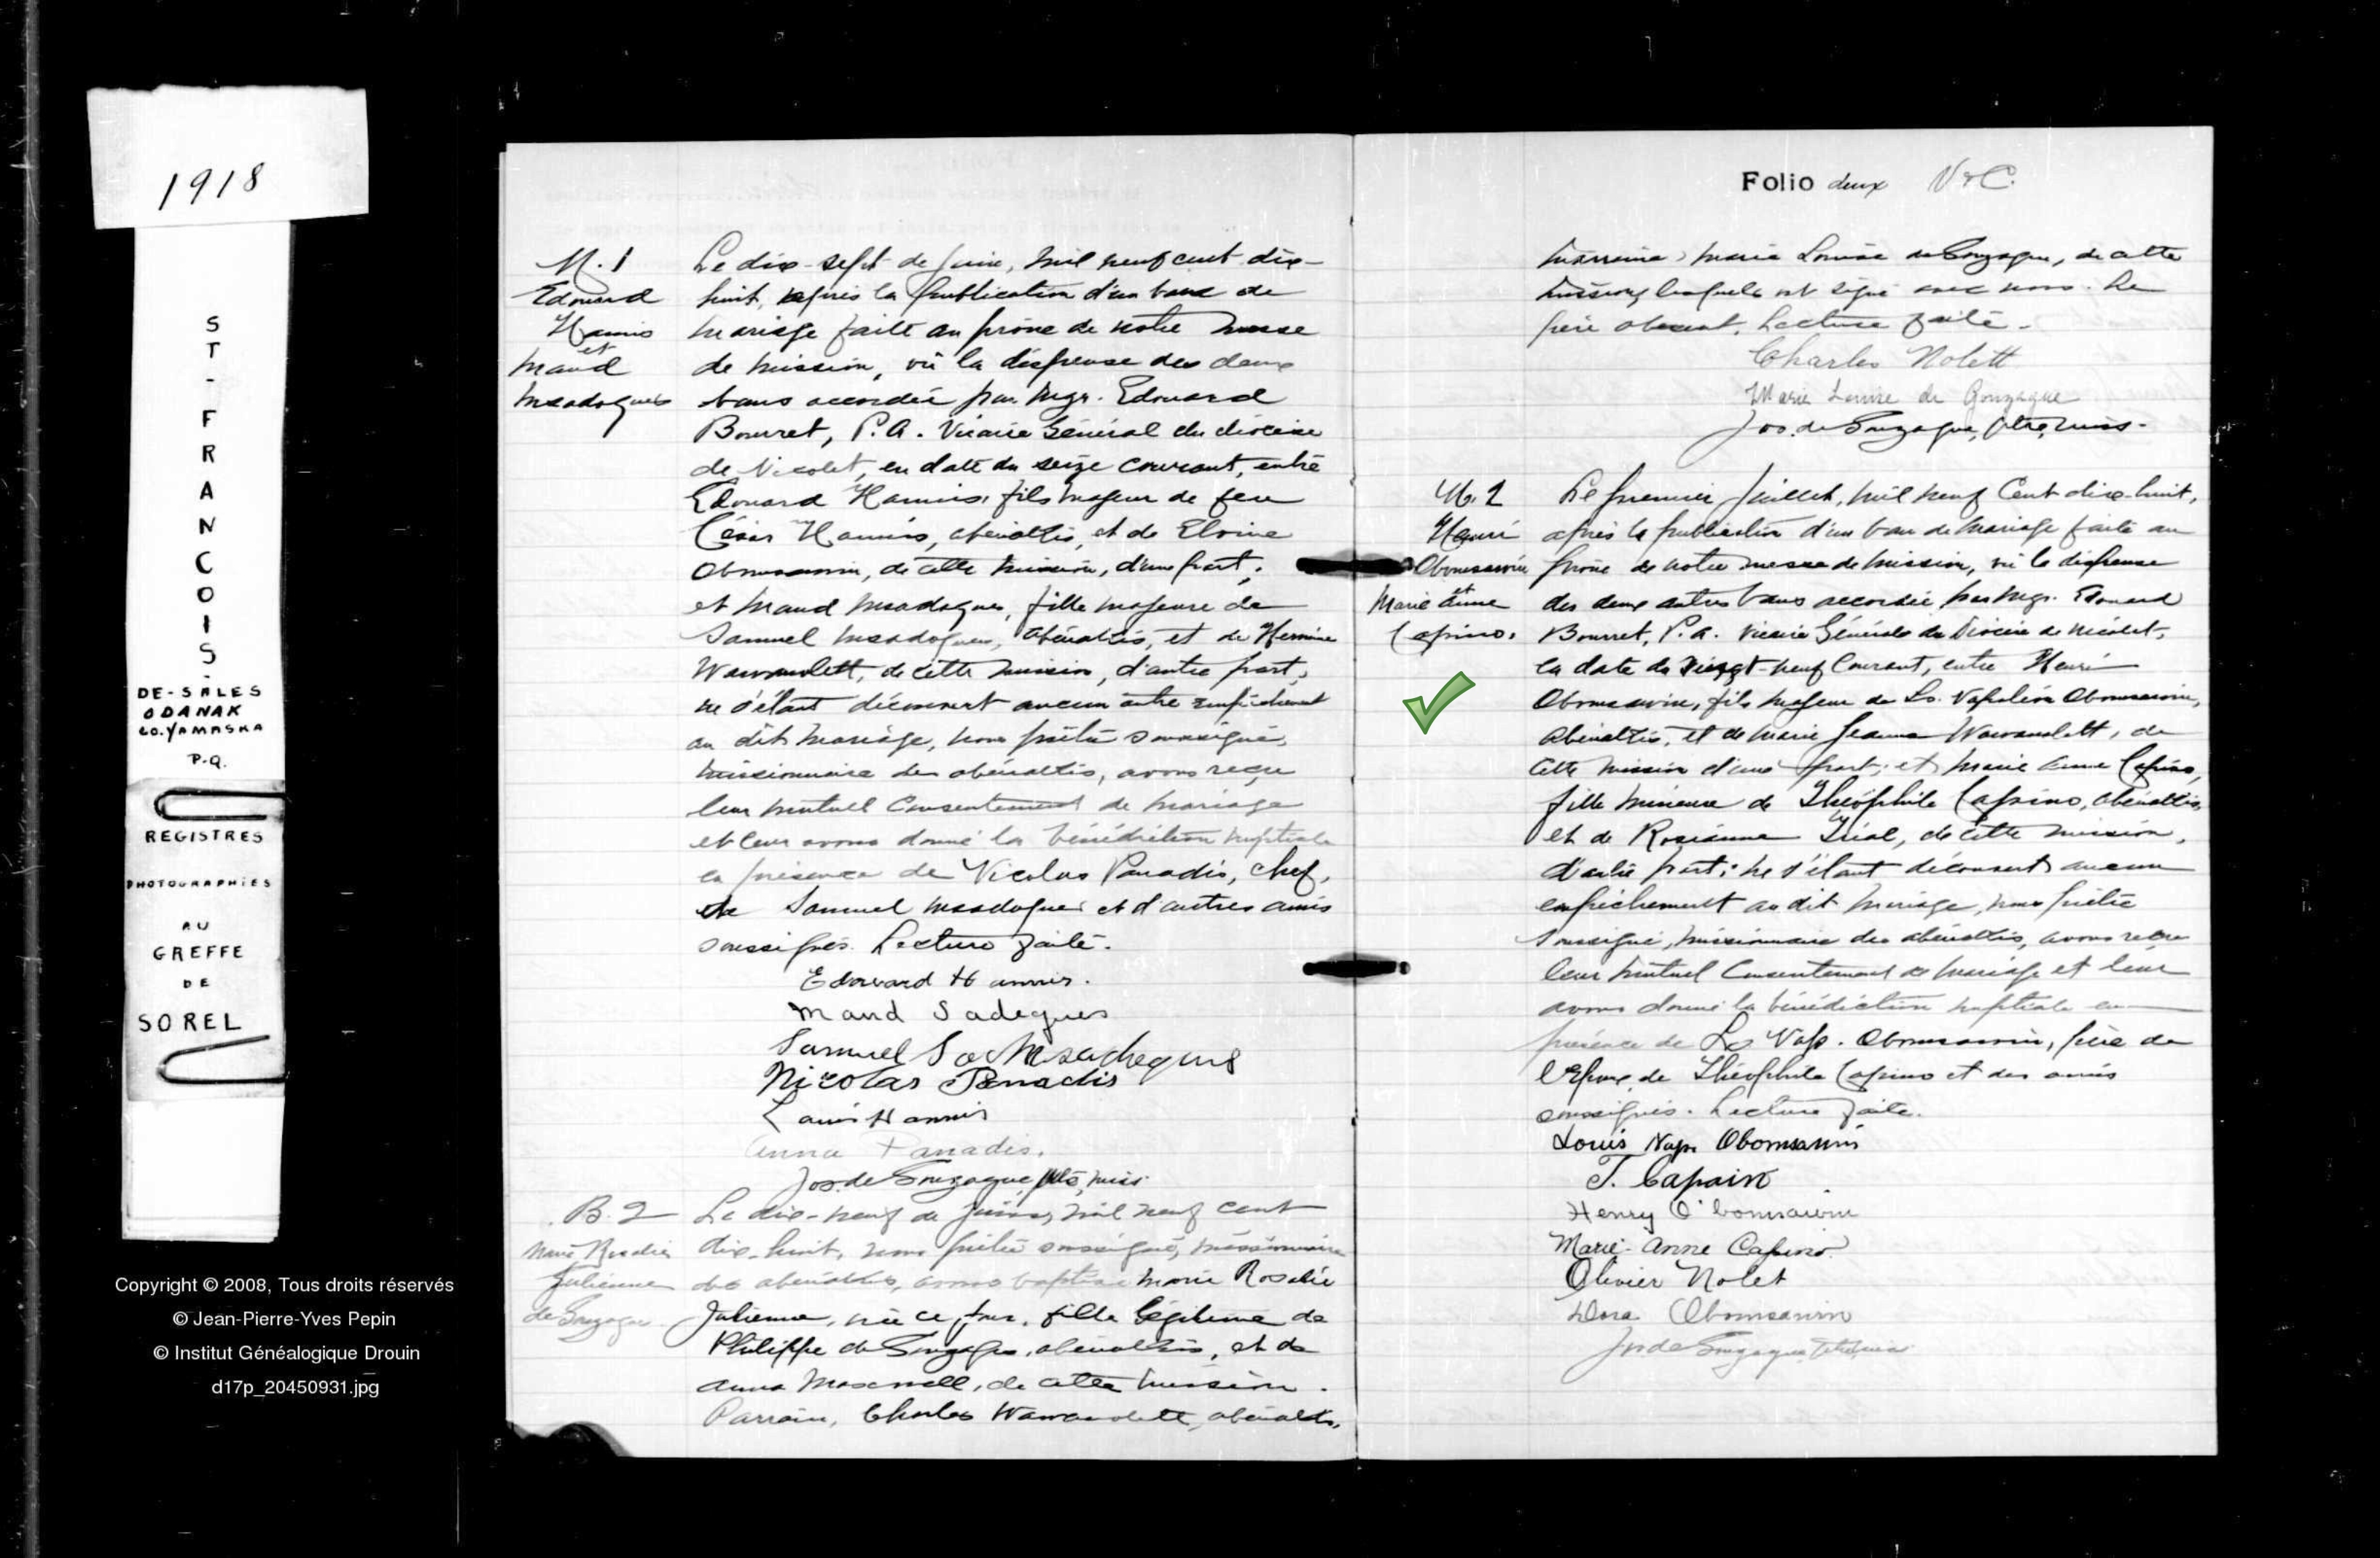 1918
ST-FRANCOIS-
DE-SALES
ODANAK
CO.YAMASKA
P.Q.
REGISTRES
PHOTOGRAPHIES
AU
GREFFE
DE
SOREL
Copyright © 2008, Tous droits réservés
© Jean-Pierre-Yves Pepin
© Institut Généalogique Drouin
d17p_20450931.jpg
M. 1
Edouard
Hannis
et
Maud
Msadoques
Le dix-sept de juin, mil neuf cent dix-
huit, après la publication d'un banc de
mariage faite au prône de notre messe
de mission, vû la dispense des deux
bans accordée par Mgr. Edouard
Bourret, P.A. Vicaire Général du diocèse
de Nicolet, en date du seize courant, entre
Edouard Hannis, fils majeur de feu
César Hannis, abénakis, et de
Obomsawin, de cette mission, d'une part,
et Maud Msadoques, fille majeure de
Samuel Msadoques, abénakis, et de Hermine
Wawanolett, de cette mission, d'autre part,
ne s'étant découvert aucun autre empêchement
au dit mariage, nous prêtre soussigné,
missionnaire des abénakis, avons reçu
leur mutuel consentement de mariage
et leur avons donné la bénédiction nuptiale
en présence de Nicolas Panadis, chef,
de Samuel Msadoques et d'autres amis
soussignés. Lecture faite.
Edouard Hannis.
Maud Sadeques
Samuel
Nicolas Panadis
Louis Hannis
Anna Panadis.
Jos. de Gonzague, ptre, miss.
B. 2
Marie Rosalie
Julienne
de Gonzague
Le dix-neuf de juin, mil neuf cent
dix-huit, nous prêtre soussigné, missionnaire
des abénakis, avons baptisé Marie Rosalie
Julienne, née ce jour, fille légitime de
Philippe de Gonzague, abénakis, et de
Anna Maxwell, de cette mission.
Parrain, Charles Wawanolett, abénakis,
Folio deux V & C.
marraine, Marie Louise de Gonzague, de cette
mission, lesquels ont signé avec nous. Le
père absent. Lecture faite.
Charles Nolett
Marie Louise de Gonzague
Jos. de Gonzague, ptre, miss.
M. 2
Henri
Obomsawin
et
Marie Anne
Capino.
Le premier juillet, mil neuf cent dix-huit,
après la publication d'un ban de mariage faite au
prône de notre messe de mission, vû la dispense
des deux autres bans accordée par Mgr. Edouard
Bourret, P.A. Vicaire Général du diocèse de Nicolet,
en date du vingt-neuf courant, entre Henri
Obomsawin, fils majeur de Ls. Napoléon Obomsawin,
abénakis, et de Marie Jeanne Wawanolett, de
cette mission d'une part; et Marie Anne Capino,
fille mineure de Théophile Capino, abénakis,
et de Rosianna, de cette mission,
d'autre part; ne s'étant découvert aucun
empêchement au dit mariage, nous prêtre
soussigné, missionnaire des abénakis, avons reçu
leur mutuel consentement de mariage et leur
avons donné la bénédiction nuptiale en
présence de Ls Nap. Obomsawin, père de
l'Epoux, de Théophile Capino et des amis
soussignés. Lecture faite.
Louis Nap. Obomsawin
T. Capino
Henry O'bomsawin
Marie-Anne Capino.
Olivier Nolet
Dora Obomsawin
Jos de Gonzague, ptre, miss